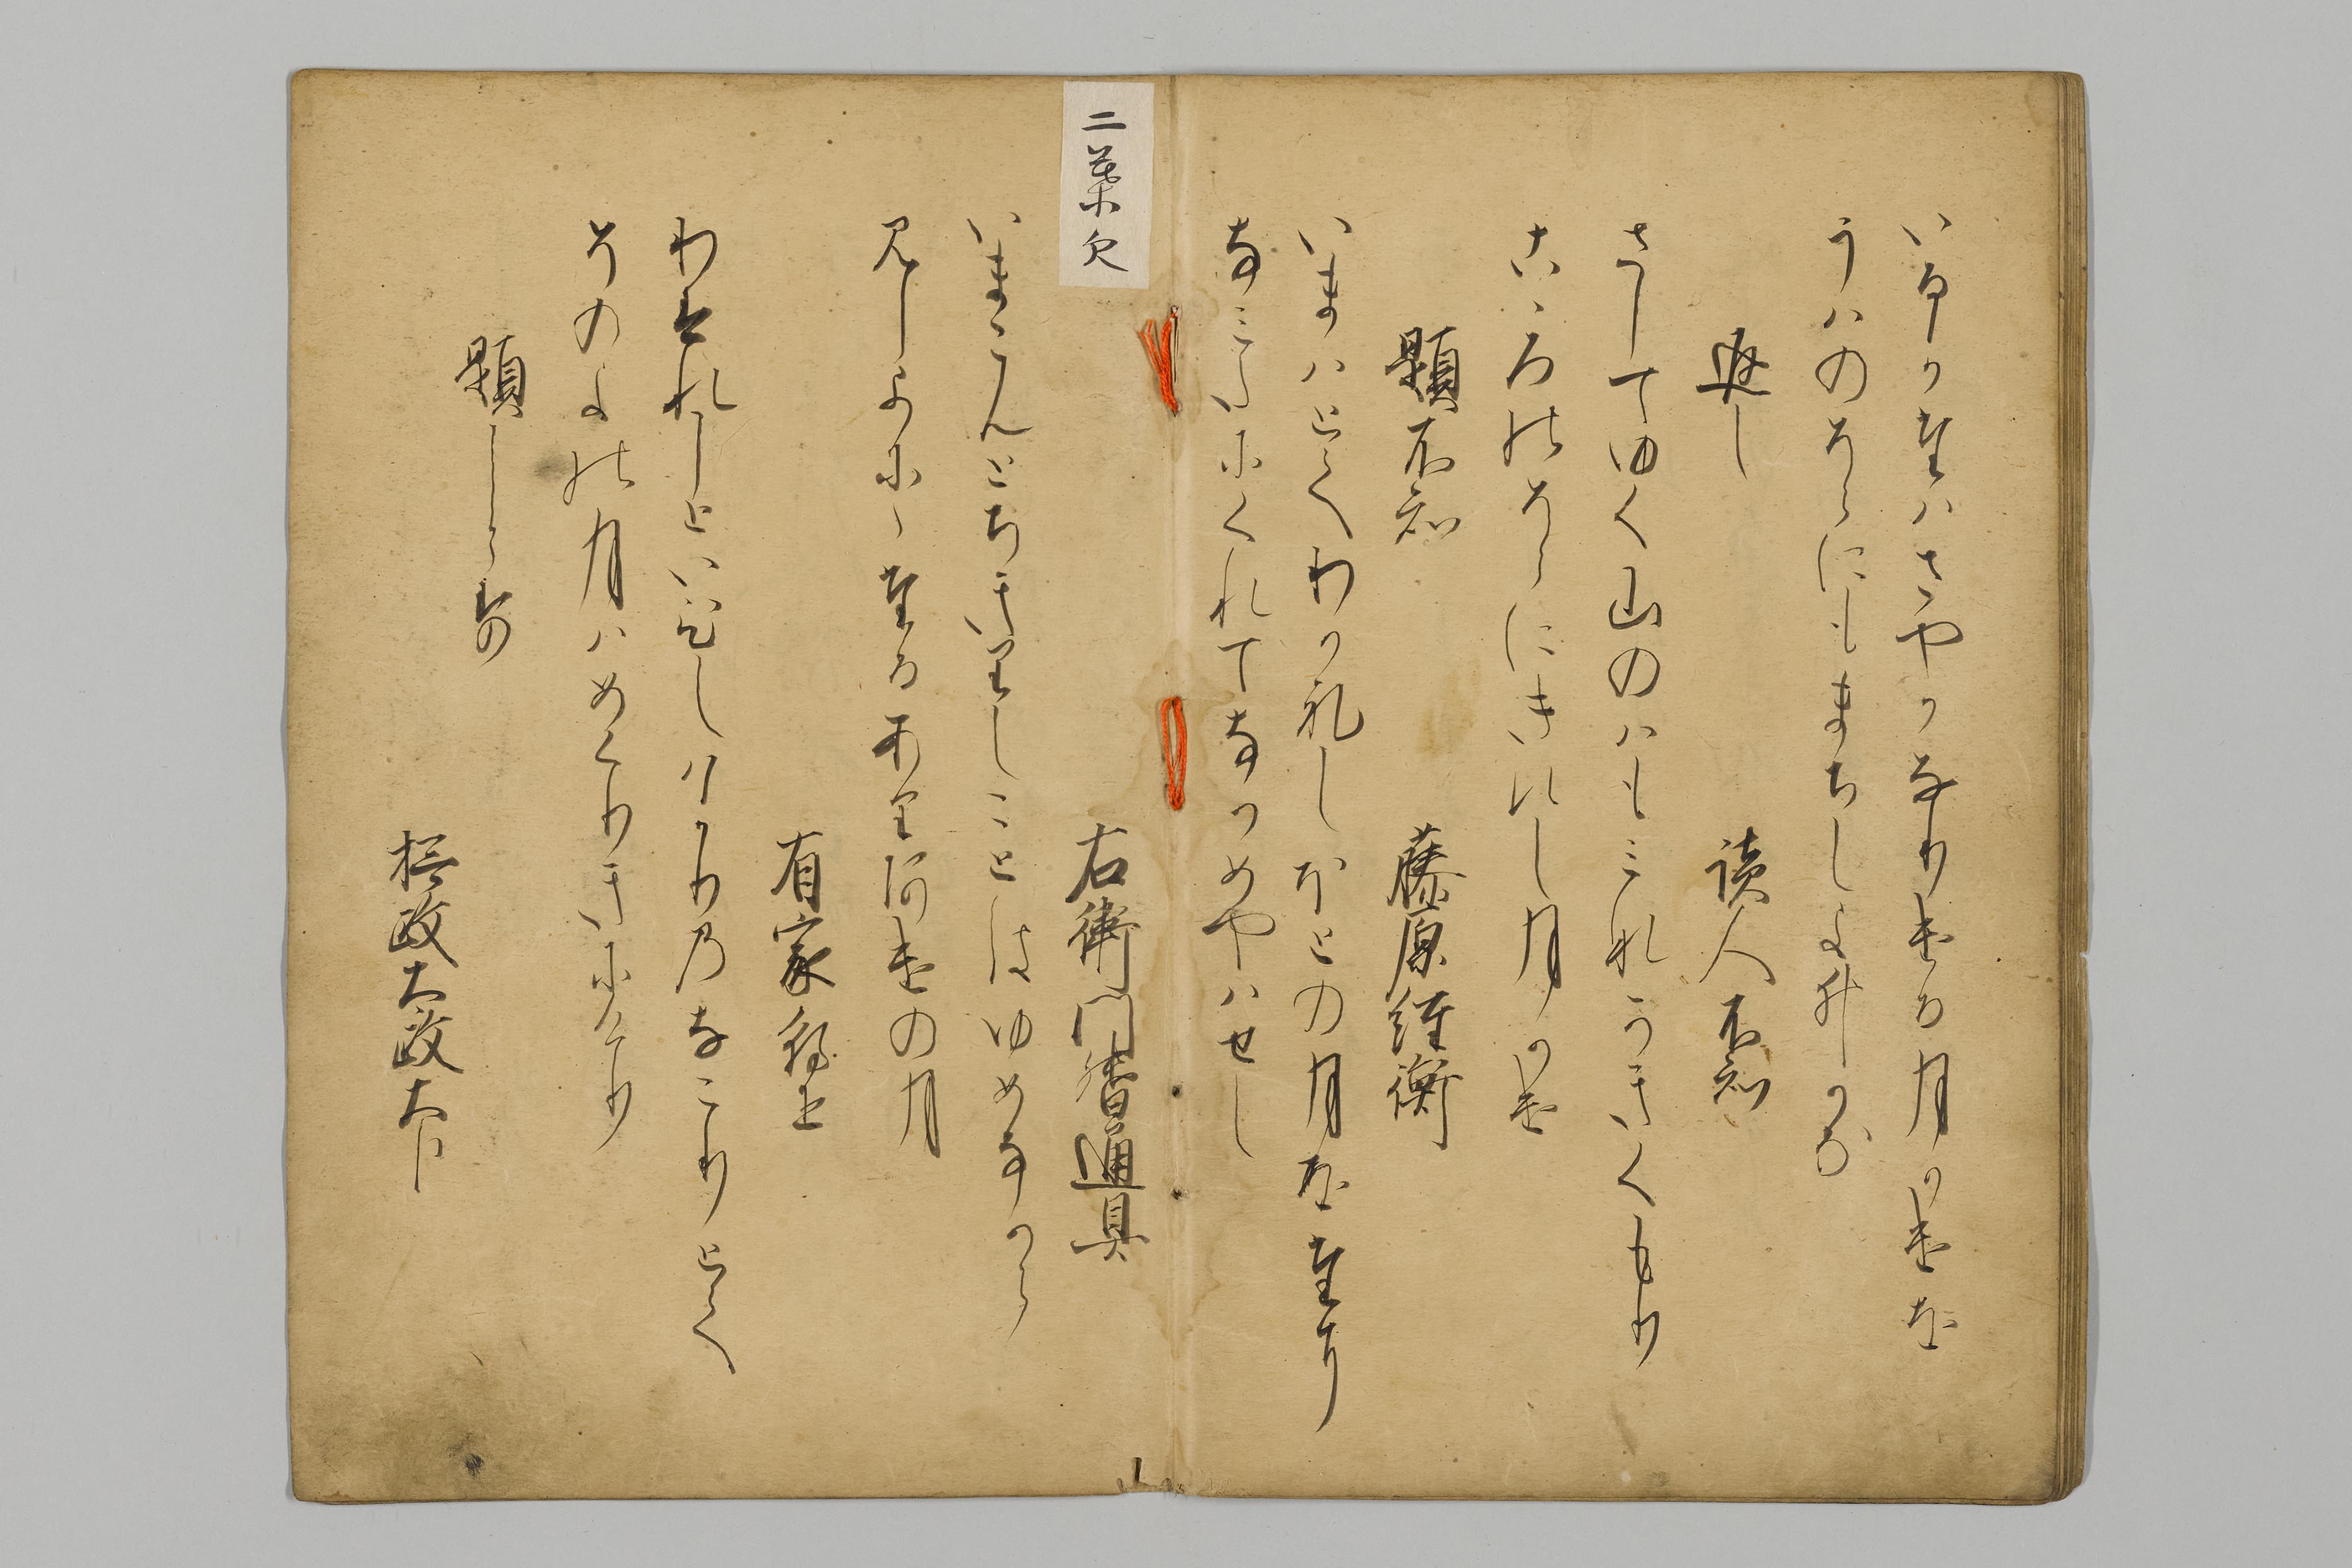 いるかたはさやかなりける月かけを
うはのそらにもまちしよひかな
返し　読人不知
さしてゆく山のはもみなかきくもり
こゝろのそらにきえし月かけ
題不知　藤原経衡
いまはとてわかれしほとの月をたに
なみたにくれてなかめやはせし
二葉欠
右衛門督通具
いまこんとちきりしことはゆめなから
見しよにゝたるありあけの月
有家朝臣
わすれしといひしはかりのなこりとて
そのよの月はめくりきにけり
題しらす
摂政太政大臣